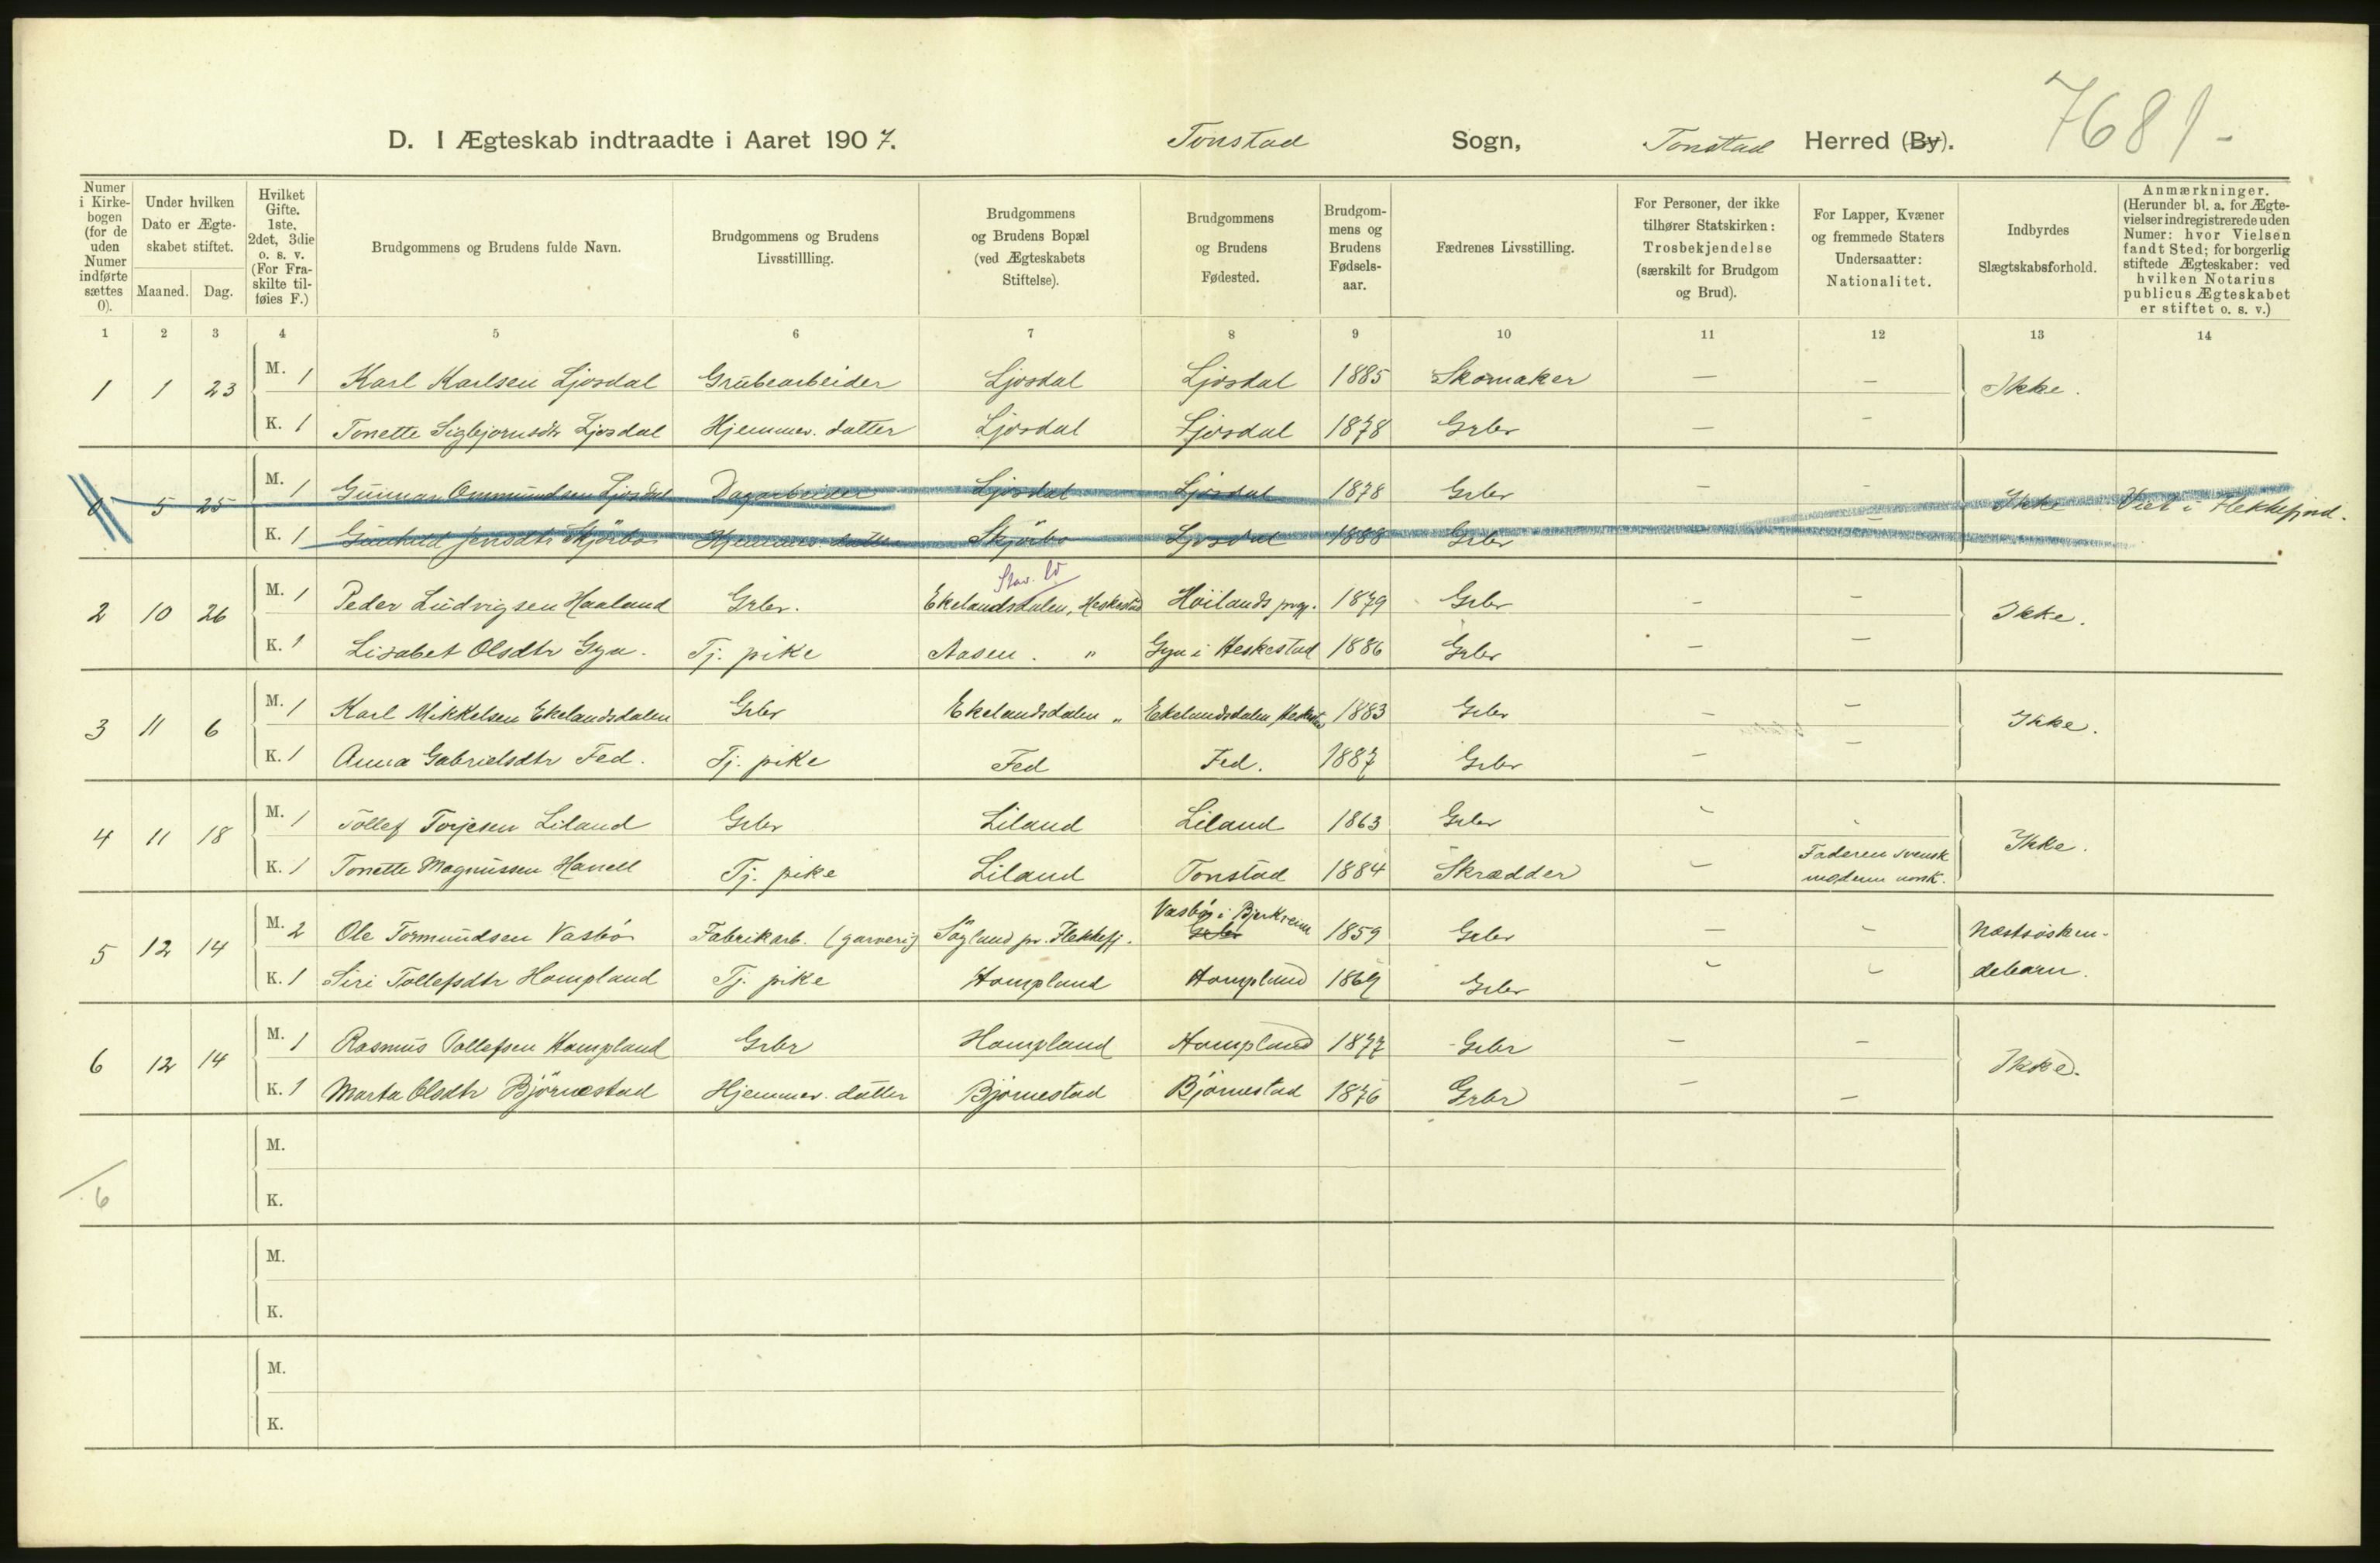 7681-
D. I Ægteskab indtraadte i Aaret 1907. Tonstad Sogn, Tonstad Herred (By).
Numer i Kirkebogen (for de uden Numer indførte sættes 0).
Under hvilken Dato er Ægteskabet stiftet.
Maaned. Dag.
Hvilket Gifte. 1ste, 2det, 3die o. s. v. (For Fraskilte tilføies F.)
Brudgommens og Brudens fulde Navn.
Brudgommens og Brudens Livsstillling.
Brudgommens og Brudens Bopæl (ved Ægteskabets Stiftelse).
Brudgommens og Brudens Fødested.
Brudgommens og Brudens Fødselsaar.
Fædrenes Livsstilling.
For Personer, der ikke tilhører Statskirken: Trosbekjendelse (særskilt for Brudgom og Brud).
For Lapper, Kvæner og fremmede Staters Undersaatter: Nationalitet.
Indbyrdes Slægtskabsforhold.
Anmærkninger. (Herunder bl. a. for Ægtevielser indregistrerede uden Numer: hvor Vielsen fandt Sted; for borgerlig stiftede Ægteskaber: ved hvilken Notarius publicus Ægteskabet er stiftet o. s. v.)
1 2 3 4 5 6 7 8 9 10 11 12 13 14
1 1 23 M. 1 Karl Karlsen Ljosdal Grubearbeider Ljosdal Ljosdal 1885 Skomaker — — Ikke.
K. 1 Tonette Sigbjornsdtr Ljosdal Hjemmev. datter Ljosdal Ljosdal 1878 Grbr — —
0 5 25 M. 1 Gunnar Ommundsen Ljosdal Dagarbeider Ljosdal Ljosdal 1878 Grbr — — Ikke Viet i Flekkefjord.
K. 1 Gunhild Jensdtr Skjörbo Hjemmev. datter Skjörbo Ljosdal 1888 Grbr — —
2 10 26 M. 1 Peder Ludvigsen Haaland Grbr. Ekelandsdalen, Heskestad Höilands prg. 1879 Grbr — — Ikke.
K. 1 Lisabet Olsdtr Gya. Tj. pike Aasen. " Gya i Heskestad 1886 Grbr — —
3 11 6 M. 1 Karl Mikkelsen Ekelandsdalen Grbr Ekelandsdalen " Ekelandsdalen, Heskestad 1883 Grbr — — Ikke.
K. 1 Anna Gabrielsdtr Fed. Tj. pike Fed Fed. 1887 Grbr — —
4 11 18 M. 1 Tollef Torjesen Liland Grbr Liland Liland 1863 Grbr — — Ikke.
K. 1 Tonette Magnussen Hanell Tj. pike Liland Tonstad 1884 Skrædder — Faderen svensk
moderen norsk.
Vasbö i Bjerkreim
5 12 14 M. 2 Ole Tormundsen Vasbö Fabrikarb. (garveri) Sögland pr. Flekkefj. Grbr 1859 Grbr — — Næstsösken-
K. 1 Siri Tollefsdtr Hompland Tj. pike Hompland Hompland 1869 Grbr — — debarn.
6 12 14 M. 1 Rasmus Tollefsen Hompland Grbr Hompland Hompland 1877 Grbr — — Ikke.
K. 1 Marta Olsdtr Björnestad Hjemmev. datter Björnestad Björnestad 1876 Grbr — —
M.
6 K.
M.
K.
M.
K.